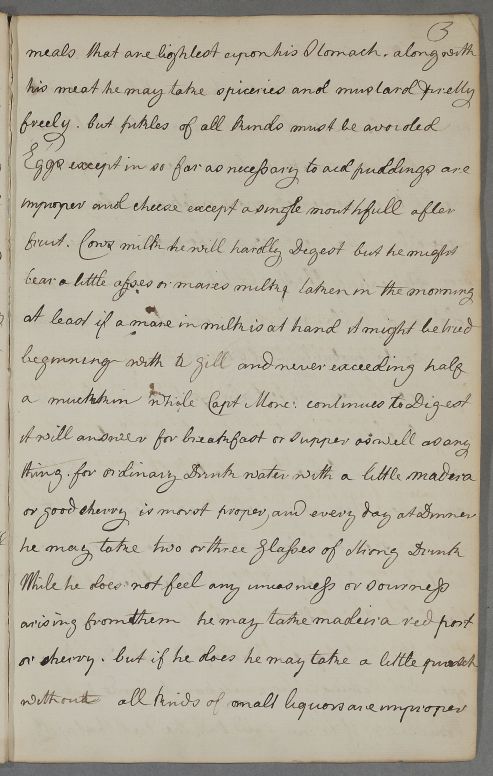 3
meals that are lightest upon his Stomach. along with
his meat he may take spiceries and mustard pretty
freely. but pickles of all kinds must be avoided
Eggs except in so far as necessary to aid puddings are
improper and cheese except a single mouthfull after
fruit. Cows milk he will hardly Digest but he might
bear a little asses or mares milk taken in the morning
at least if a mare in milk is at hand it might be tried
beginning with a gill and never exceeding half
a mutchkin while Capt More: continues to Digest
it will answer for breakfast or supper as well as any
thing. for ordinary Drink water with a little madeira
or good sherry is most proper, and every day at Dinner
he may take two or three Glasses of strong Drink
While he does not feel any uneasiness or sourness
arising from them he may take madeira red port
or sherry. but if he does he may take a little punch
without all kinds of small liquors are improper